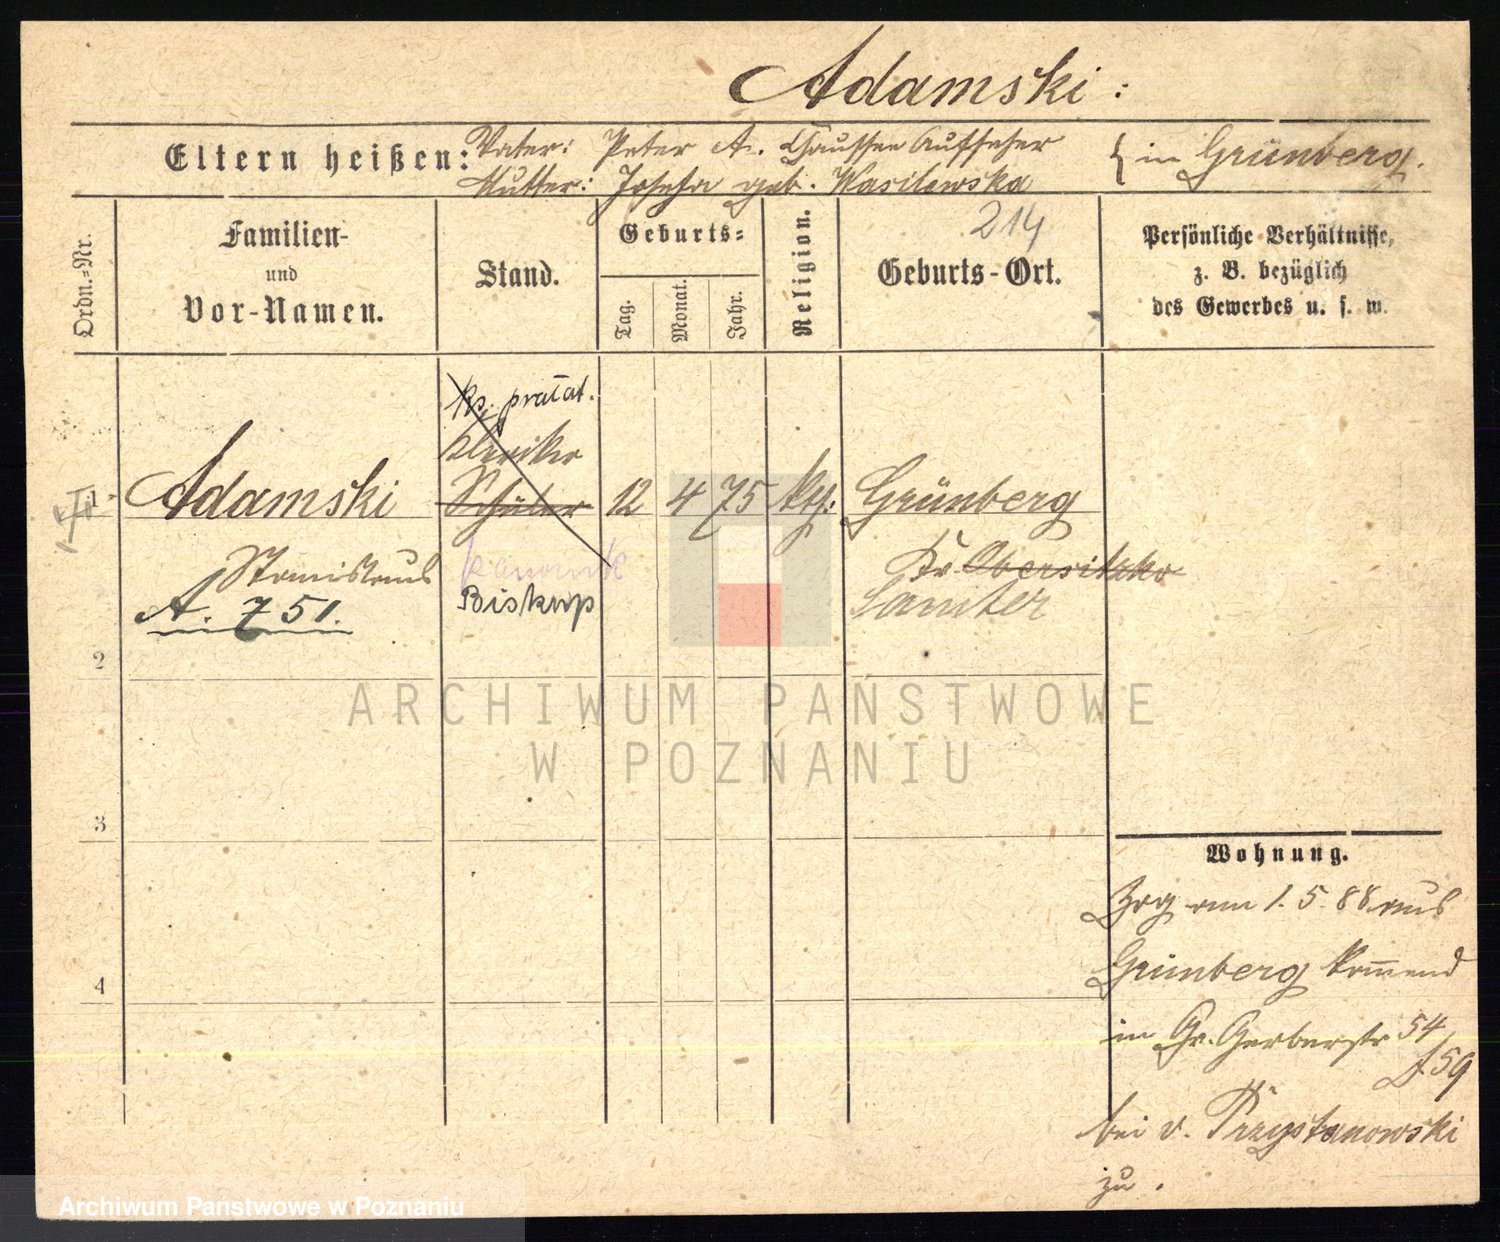 Adamski:
Eltern heißen: Vater: Peter A. Chaussee Aufseher
Mutter: Josefa geb. Wasilewska
} in Grünberg.
214
Ordn.-Nr.
Familien-
und
Vor-Namen.
Stand.
Geburts-
Tag.
Monat.
Jahr.
Religion.
Geburts-Ort.
Persönliche Verhältnisse,
z. B. bezüglich
des Gewerbes u. s. w.
Ks. prałat.
Kleriker
1 Adamski Schüler 12 4 75 kth: Grünberg
Stanislaus kanonik Kr. Obersitzko
A. 751. Biskup Samter
2
3
4
Wohnung.
Zog am 1. 5. 88 aus
Grünberg kommend
in Gr. Gerberstr 54
bei v. Przystanowski
zu.
ARCHIWUM PAŃSTWOWE
W POZNANIU
Archiwum Państwowe w Poznaniu